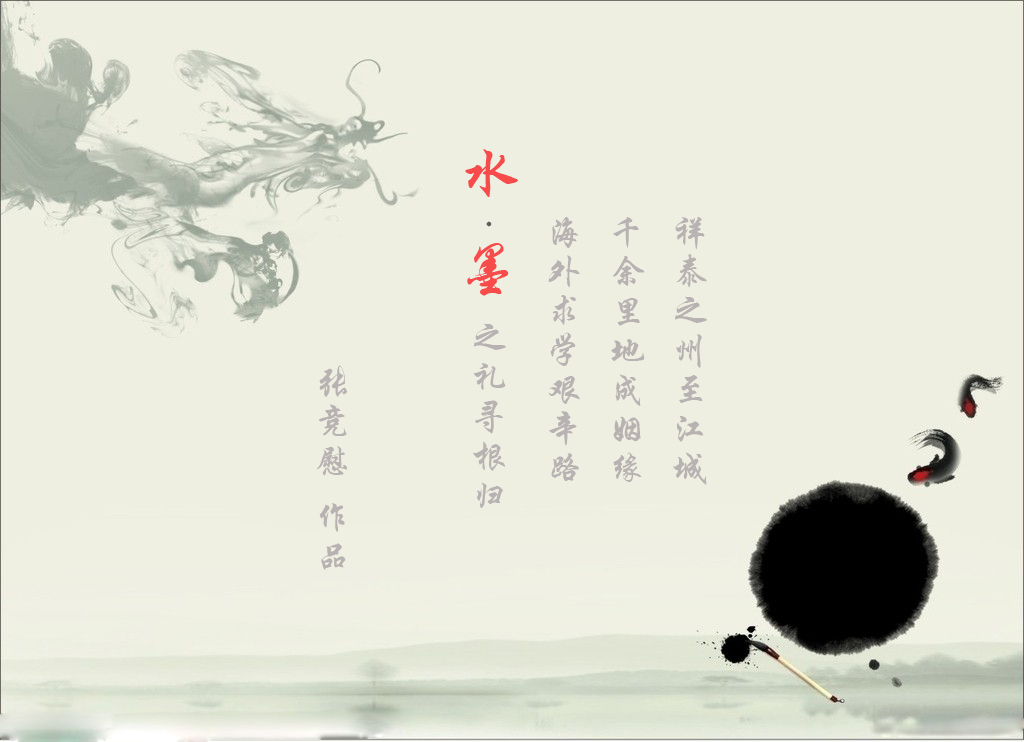 祥泰之州至江城
千余里地成姻缘
海外求学艰辛路
水·墨之礼寻根归
张竞慰 作品